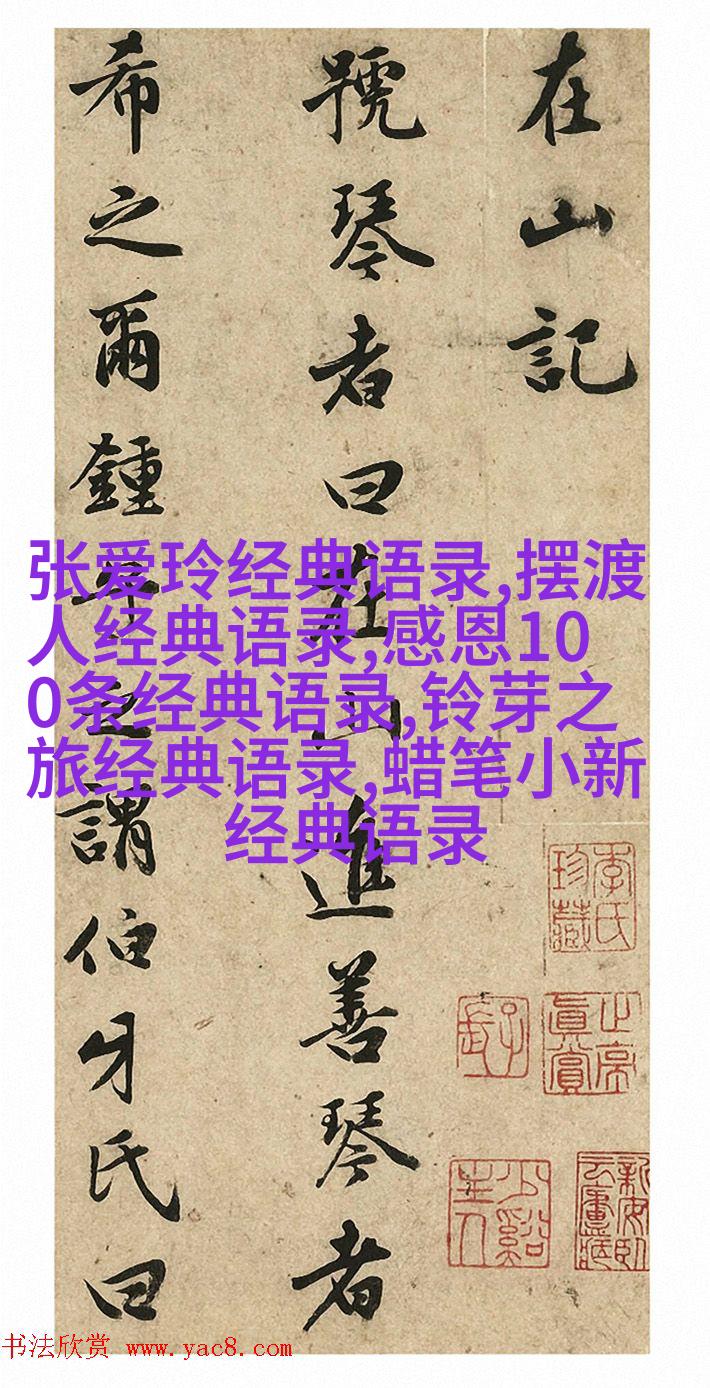 在山記
號琴者曰在山進善琴者
希之爾鍾謂伯牙氏曰
张爱玲经典语录,摆渡
人经典语录,感恩10
0条经典语录,铃芽之
旅经典语录,蜡笔小新
经典语录
李氏珍藏
止亭真賞
少谿主人
书法欣赏 www.yac8.com